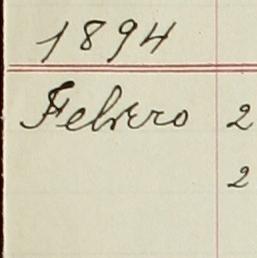 1894
Febrero 2
2